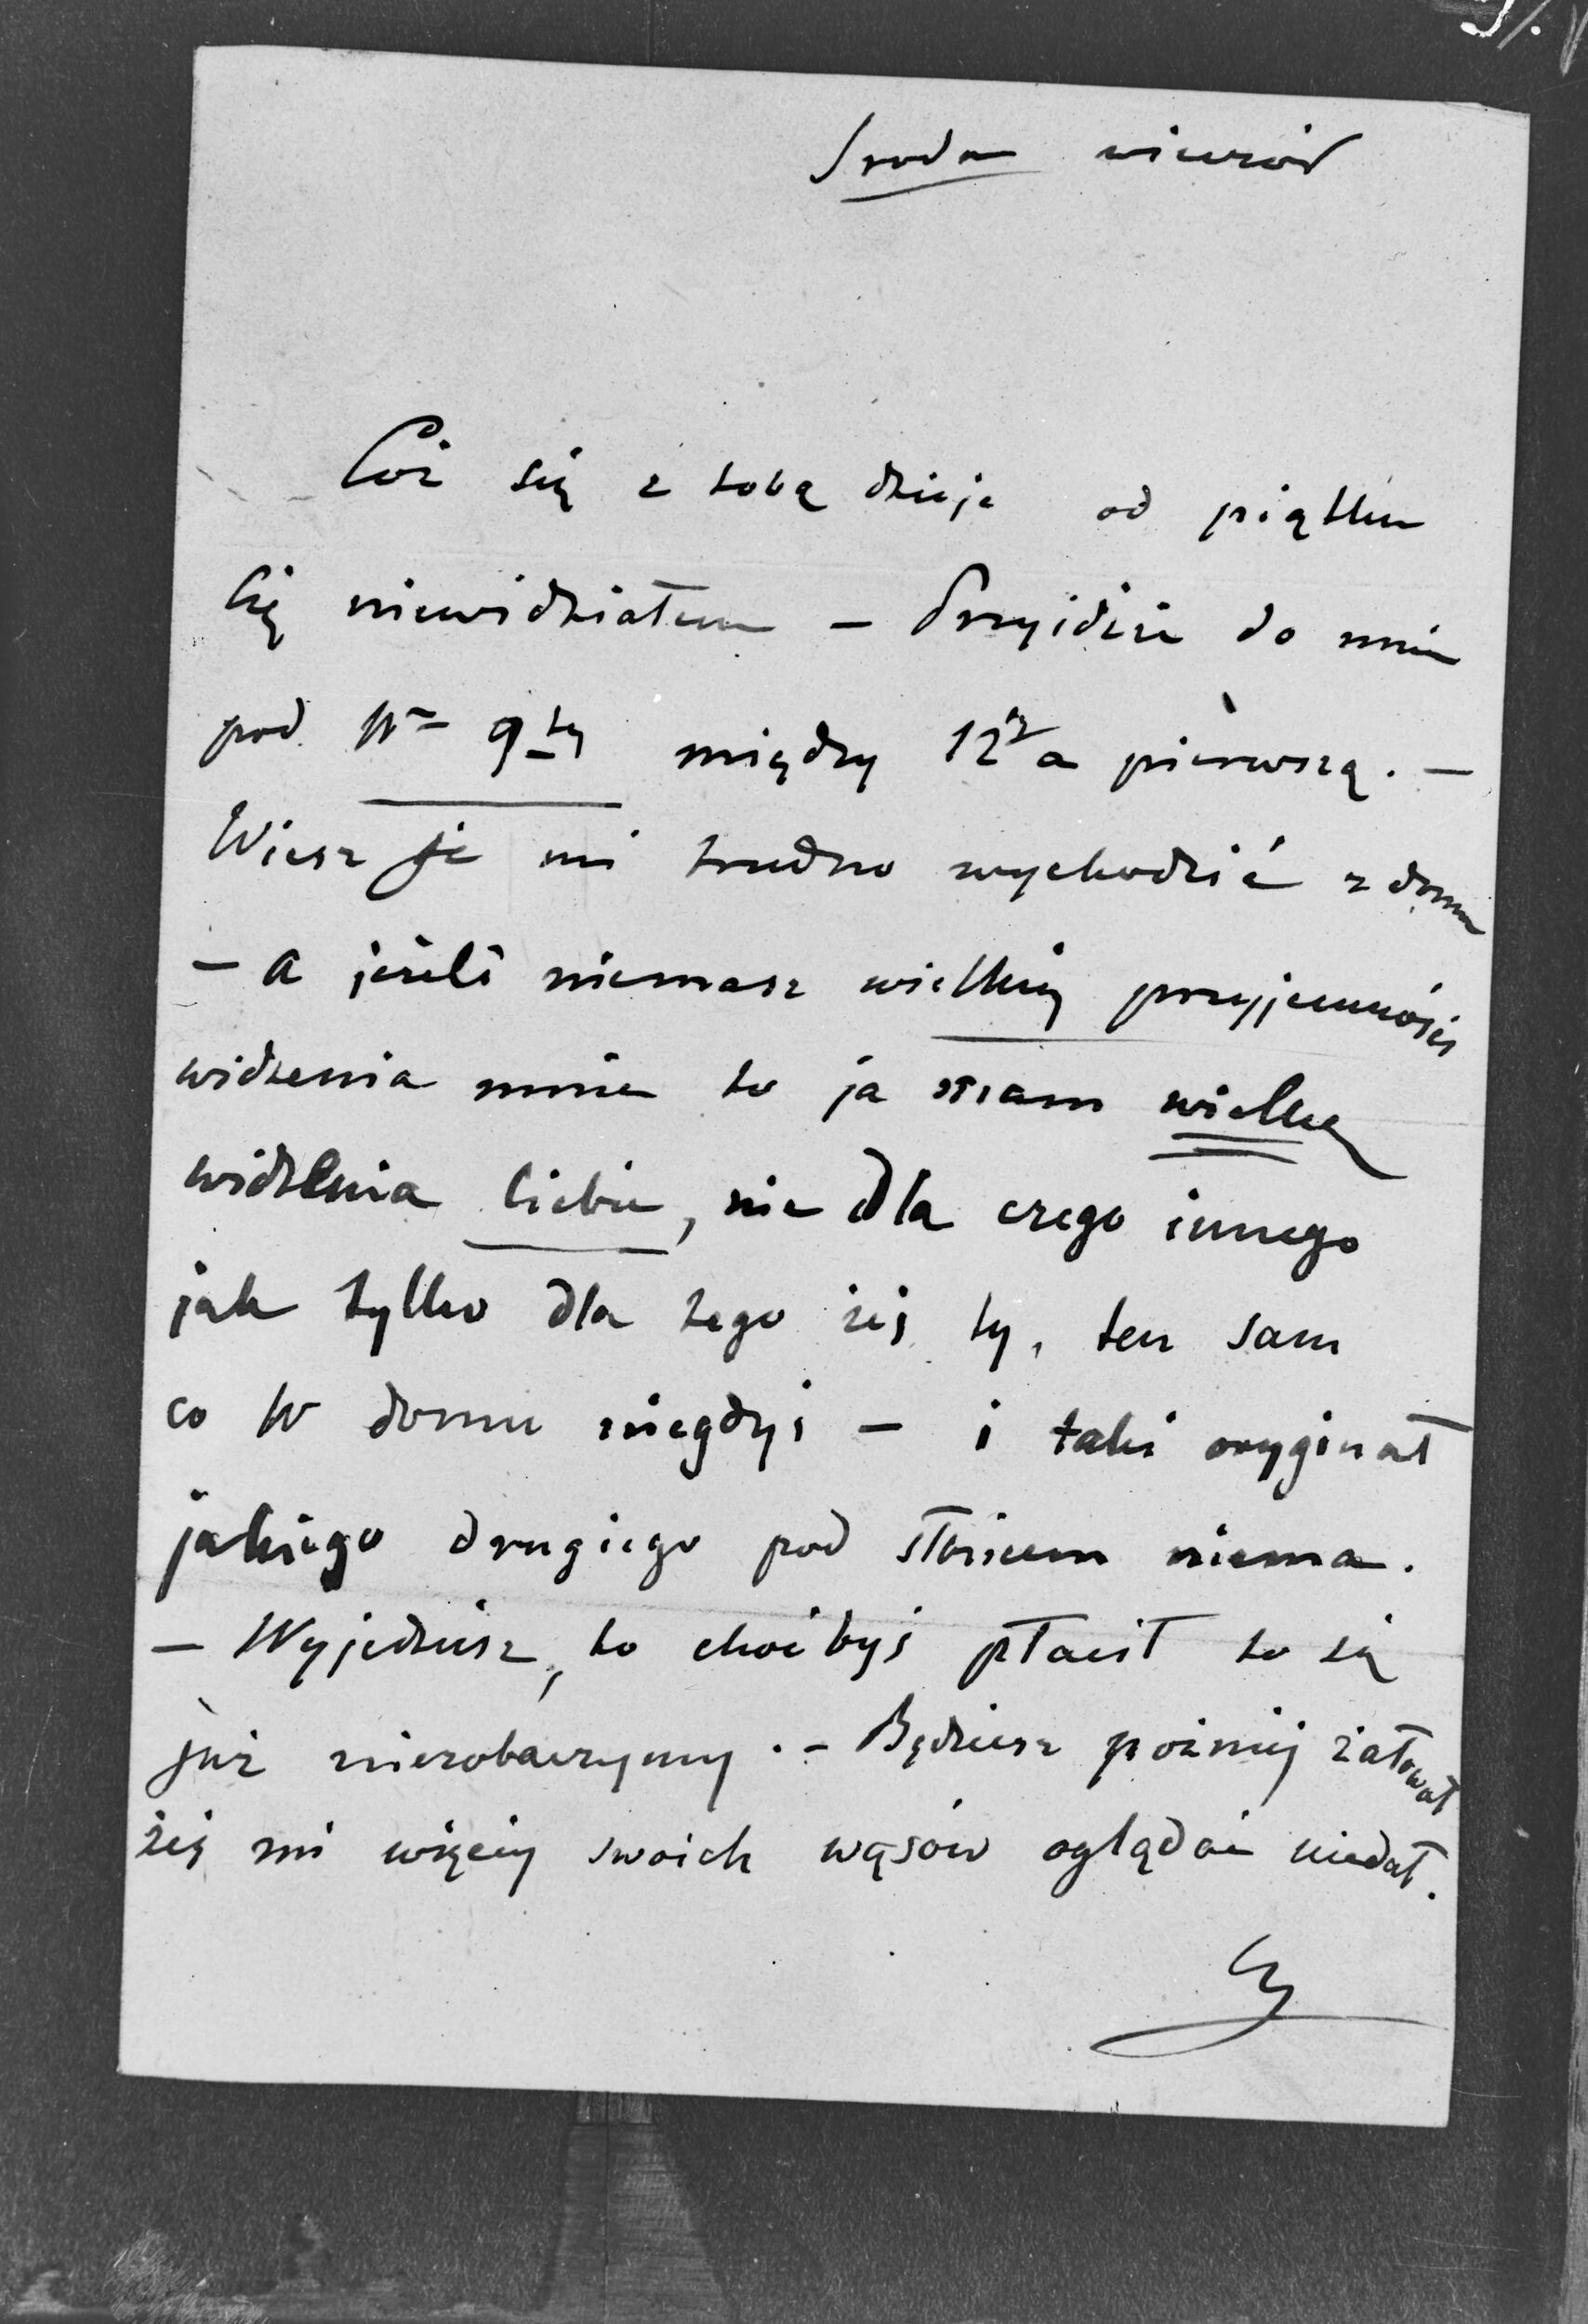 Sroda wieczór
Cóż się z tobą dzieje od piątku
Cię niewidziałem — Przyidzie do mnie
pod Nr 9ty między 12ą a pierwszą. —
Wiesz że mi trudno wychodzić z domu
— a jeżeli niemasz wielkiej przyjemności
widzenia mnie to ja mam wielką
widzenia Ciebie, nie dla czego innego
jak tylko dla tego żeś ty, ten sam
co w domu niegdyś — i taki oryginał
jakiego drugiego pod słońcem niema.
— Wyjedziesz, to choćbyś płacił to się
już niezobaczymy. — Będziesz poźniej żałował
żeś mi więcej swoich wąsów oglądać niedał.